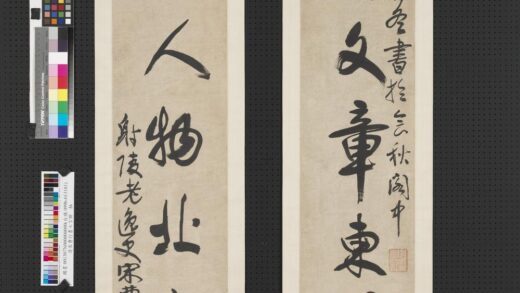 冬書於会秋閣中
文章東
人物北
射陵老逸史宋曹